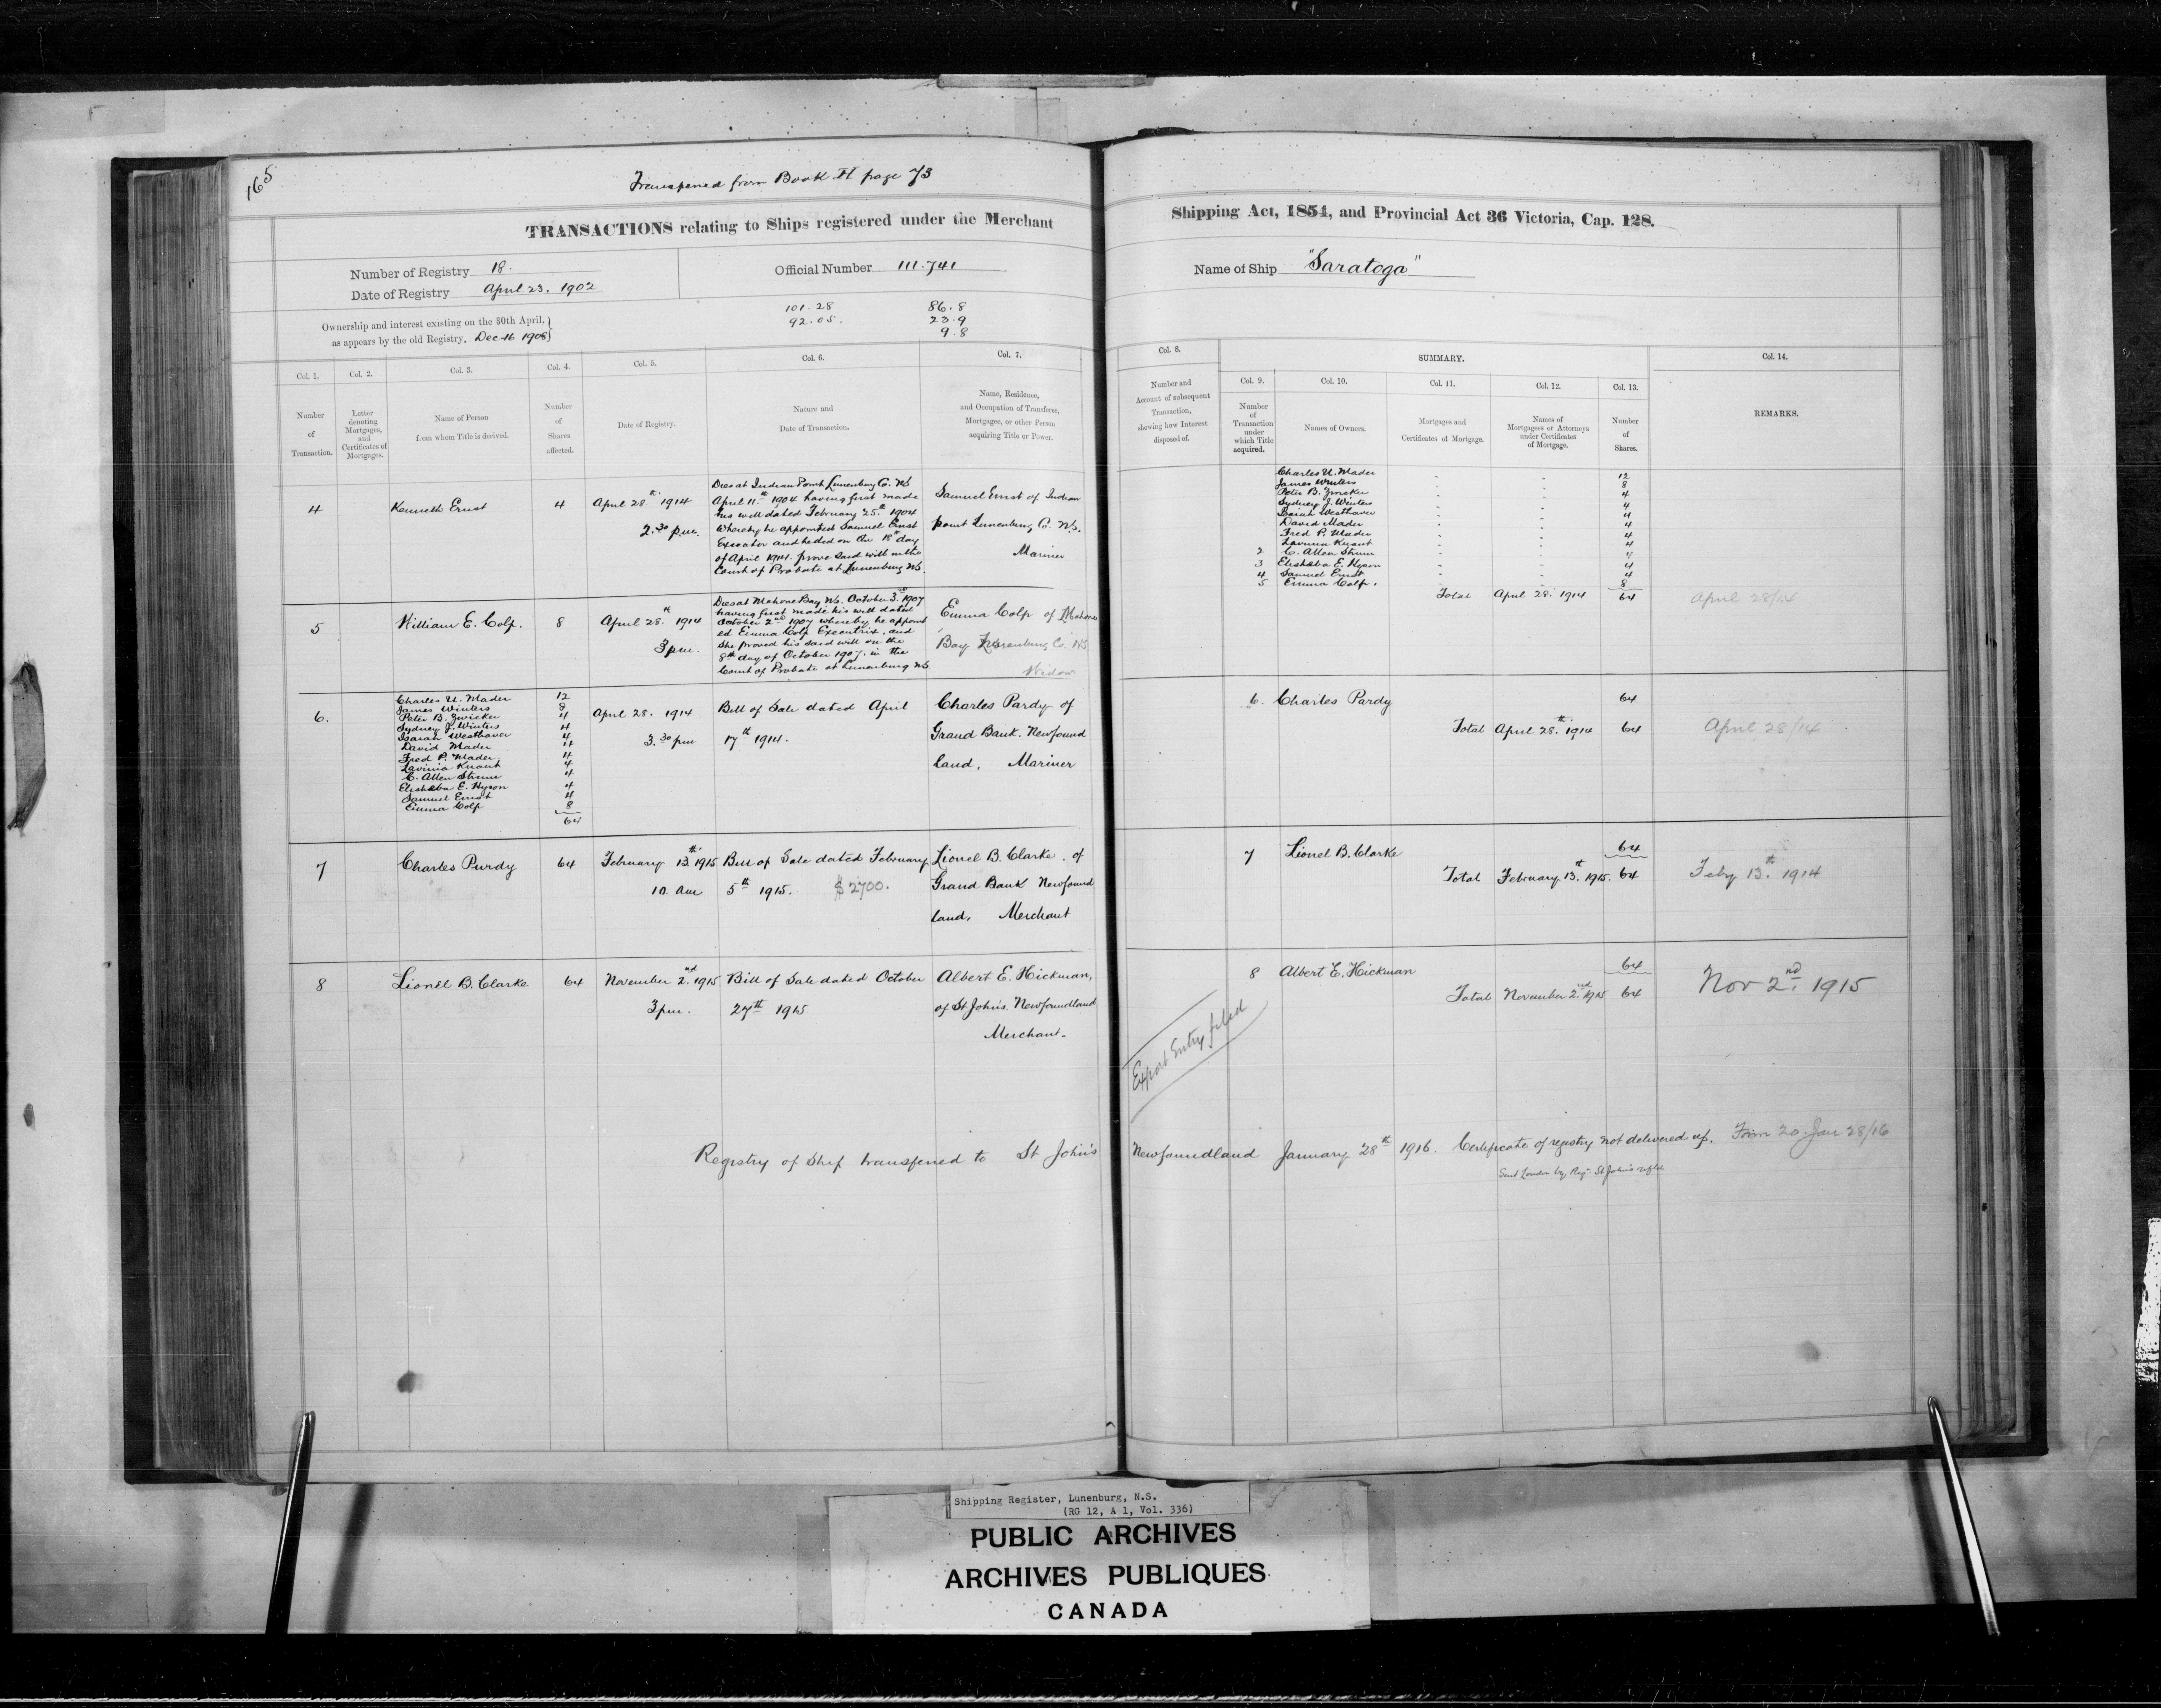 165
Transferred from Book H page 73
TRANSACTIONS relating to Ships registered under the Merchant Shipping Act, 1854, and Provincial Act 36 Victoria, Cap. 128.
Number of Registry 18.
Date of Registry April 23. 1902
Official Number 111.741
Name of Ship "Saratoga"
Ownership and interest existing on the 30th April,
as appears by the old Registry. Dec 16 1908
101.28
92.05.
86.8
23.9
9.8
Col. 1.
Number
of
Transaction.
Col. 2.
Letter
denoting
Mortgages,
and
Certificates of
Mortgages.
Col. 3.
Name of Person
from whom Title is derived.
Col. 4.
Number
of
Shares
affected.
Col. 5.
Date of Registry.
Col. 6.
Nature and
Date of Transaction.
Col. 7.
Name, Residence,
and Occupation of Transferee,
Mortgagee, or other Person
acquiring Title or Power.
Col. 8.
Number and
Account of subsequent
Transaction,
showing how Interest
disposed of.
SUMMARY.
Col. 9.
Number
of
Transaction
under
which Title
acquired.
Col. 10.
Names of Owners.
Col. 11.
Mortgages and
Certificates of Mortgage.
Col. 12.
Names of
Mortgagees or Attorneys
under Certificates
of Mortgage.
Col. 13.
Number
of
Shares.
Col. 14.
REMARKS.
4
Kenneth Ernst
4
April 28th 1914
2.30 p.m.
Dies at Indian Point Lunenburg Co. NS
April 11th 1904 having first made
his will dated February 25th 1904
whereby he appointed Samuel Ernst
Executor and he did on the 18th day
of April 1904 prove said will in the
Court of Probate at Lunenburg NS.
Samuel Ernst of Indian
point Lunenburg Co. N.S.
Mariner
Charles U. Mader 12
James Winters 8
Peter B. Zwicker 4
Sydney J. Winters 4
Isaiah Westhaver 4
David Mader 4
Fred P. Mader 4
Lavinia Knaut 4
2 C. Allen Strum 4
3 Elisheba E. Hyson 4
4 Samuel Ernst 4
5 Emma Colp. 8
Total April 28. 1914 64
April 28/14
5
William E. Colp.
8
April 28th 1914
3 pm.
Dies at Mahone Bay NS. October 3rd 1907
having first made his will dated
October 2nd 1907 whereby he appoint
ed Emma Colp Executrix, and
She proved his said will on the
8th day of October 1907. in the
Court of Probate at Lunenburg NS
Emma Colp of Mahone
Bay Lunenburg Co. NS
Widow
6.
Charles U. Mader 12
James Winters 8
Peter B. Zwicker 4
Sydney J. Winters 4
Isaiah Westhaver 4
David Mader 4
Fred P. Mader 4
Lavinia Knaut 4
C. Allen Strum 4
Elisheba E. Hyson 4
Samuel Ernst 4
Emma Colp 8
64
April 28. 1914
3.30 pm
Bill of Sale dated April
17th 1914.
Charles Pardy of
Grand Bank. Newfound
land, Mariner
6. Charles Pardy 64
Total April 28th 1914 64
April 28/14
7
Charles Purdy
64
February 13th 1915
10. am
Bill of Sale dated February
5th 1915. $2700.
Lionel B. Clarke. of
Grand Bank Newfound
land, Merchant
7 Lionel B. Clarke 64
Total February 13th 1915. 64
Feby 13th 1914
8
Lionel B. Clarke
64
November 2nd 1915
3 pm.
Bill of Sale dated October
27th 1915
Albert E. Hickman,
of St John's. Newfoundland
Merchant.
8 Albert E. Hickman 64
Total November 2nd 1915 64
Nov 2nd 1915
Export Entry filed
Registry of Ship transferred to St John's Newfoundland January 28th 1916. Certificate of registry not delivered up. Form 20 Jan 28/16
Sent London by Reg St John's
Shipping Register, Lunenburg, N.S.
(RG 12, A 1, Vol. 336)
PUBLIC ARCHIVES
ARCHIVES PUBLIQUES
CANADA